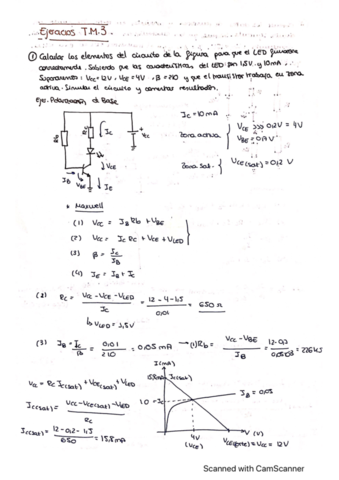 Ejercicios T.M.3.
① Calcular los elementos del circuito de la figura para que el LED funcione
correctamente. Sabiendo que las características del LED son 1,5V y 10mA.
Supondremos: Vcc = 12V, VCE = 4V, β = 210 y que el transistor trabaja en zona
activa. Simular el circuito y comentar resultados.
Eje. Polarización de Base
Ic = 10 mA
Zona activa { VCE >>> 0,2V = 4V
VBE = 0,7V
Zona sat. { VCE(sat) = 0,2 V
Rb
Rc
Ic
Vcc
VCE
IB
IE
* Maxwell
(1) Vcc = IB Rb + VBE
(2) Vcc = Ic Rc + VCE + VLED
(3) β = Ic / IB
(4) IE = IB + Ic
(2) Rc = Vcc - VCE - VLED / Ic = 12 - 4 - 1,5 / 0,01 = 650 Ω
↳ VLED = 1,5V
(3) IB = Ic / β = 0,01 / 210 = 0,05 mA → (1) Rb = Vcc - VBE / IB = = 226kΩ
Vcc = Rc Ic(sat) + VCE(sat) + VLED
Ic(sat) = Vcc - VCE(sat) - VLED / Rc
Ic(sat) = 12 - 0,2 - 1,5 / 650 = 15,8 mA
I (mA)
Ic(sat)
10 = Ic
IB = 0,05
4V
(VCE)
V (V)
VCE(corte) = Vcc = 12V
Scanned with CamScanner